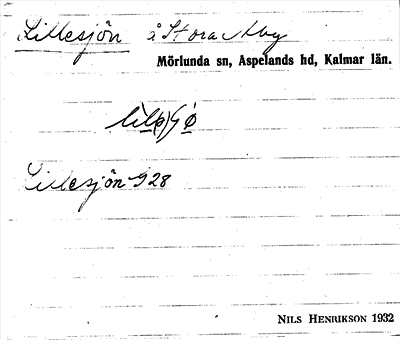 Lillesjön å Stora Åby
Mörlunda sn, Aspelands hd, Kalmar län.
Lillesjön G28
NILS HENRIKSON 1932